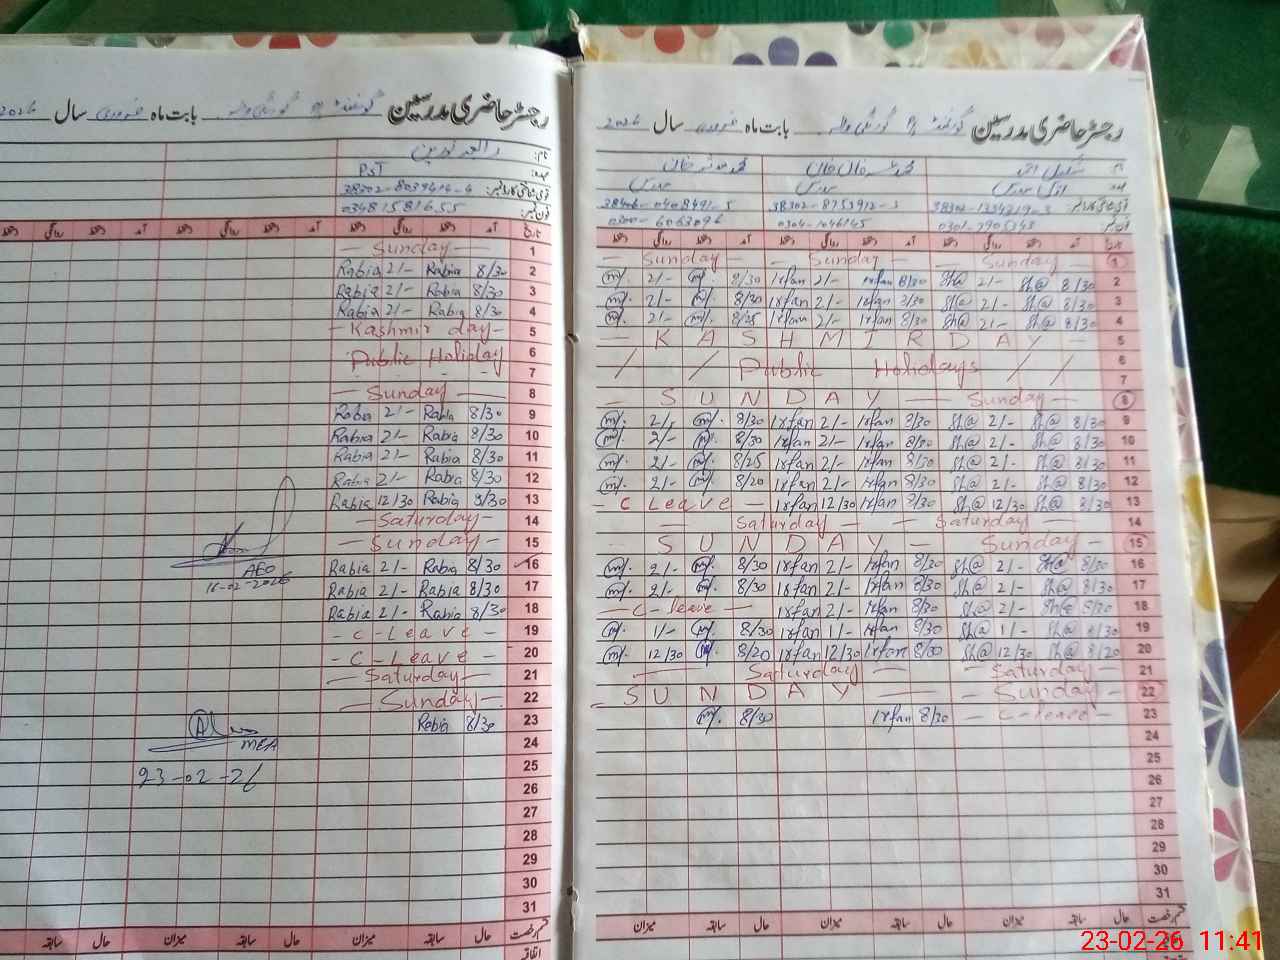 رجسٹر حاضری مدرسین گورنمنٹ بابت ماہ فروری سال 2026
نام:
PST
38302-8039416-4
فون نمبر: 03481581655
تاریخ آمد دستخط روانگی دستخط آمد دستخط روانگی دستخط
1 — Sunday —
2 8/30 Rabia 2/- Rabia
3 8/30 Rabia 2/- Rabia
4 8/30 Rabia 2/- Rabia
5 - Kashmir day -
6 Public Holiday
7
8 — Sunday —
9 8/30 Rabia 2/- Rabia
10 8/30 Rabia 2/- Rabia
11 8/30 Rabia 2/- Rabia
12 8/30 Rabia 2/- Rabia
13 8/30 Rabia 12/30 Rabia
14 — Saturday —
15 — Sunday —
16 8/30 Rabia 2/- Rabia
AEO
16-02-2026
17 8/30 Rabia 2/- Rabia
18 8/30 Rabia 2/- Rabia
19 - C - Leave -
20 - C - Leave -
21 — Saturday —
22 — Sunday —
23 8/30 Rabia
MEA
24
25
23-02-26
26
27
28
29
30
31
میزان حال سابقہ میزان حال سابقہ میزان حال سابقہ
رجسٹر حاضری مدرسین گورنمنٹ بابت ماہ فروری سال 2026
38302-8753912-3
0304-1046145
تاریخ آمد دستخط روانگی دستخط آمد دستخط روانگی دستخط آمد دستخط روانگی دستخط
1 — Sunday — - Sunday — — Sunday —
2 8/30 Sh@ 2/- Sh@ 8/30 Irfan 2/- Irfan 8/30 m. 2/- m.
3 8/30 Sh@ 2/- Sh@ 8/30 Irfan 2/- Irfan 8/30 m. 2/- m.
4 8/30 Sh@ 2/- Sh@ 8/30 Irfan 2/- Irfan 8/25 m. 2/- m.
5 — K A S H M I R D A Y —
6 / / Public Holidays / /
7
8 — S U N D A Y — Sunday —
9 8/30 Sh@ 2/- Sh@ 8/30 Irfan 2/- Irfan 8/30 m. 2/- m.
10 8/30 Sh@ 2/- Sh@ 8/30 Irfan 2/- Irfan 8/30 m. 2/- m.
11 8/30 Sh@ 2/- Sh@ 8/30 Irfan 2/- Irfan 8/25 m. 2/- m.
12 8/30 Sh@ 2/- Sh@ 8/30 Irfan 2/- Irfan 8/20 m. 2/- m.
13 8/30 Sh@ 12/30 Sh@ 8/30 Irfan 12/30 Irfan - C Leave -
14 — Saturday — — Saturday —
15 - S U N D A Y — Sunday —
16 8/30 Sh@ 2/- Sh@ 8/30 Irfan 2/- Irfan 8/30 m. 2/- m.
17 8/30 Sh@ 2/- Sh@ 8/30 Irfan 2/- Irfan 8/30 m. 2/- m.
18 8/30 Sh@ 2/- Sh@ 8/30 Irfan 2/- Irfan — C - leave —
19 8/30 Sh@ 1/- Sh@ 8/30 Irfan 1/- Irfan 8/30 m. 1/- m.
20 8/20 Sh@ 12/30 Sh@ 8/30 Irfan 12/30 Irfan 8/20 m. 12/30 m.
21 — Saturday — Saturday —
22 S U N D A Y — — Sunday —
23 — C - leave — 8/30 Irfan 8/30 m.
24
25
26
27
28
29
30
31
میزان حال سابقہ میزان حال سابقہ میزان حال سابقہ
23-02-26 11:41